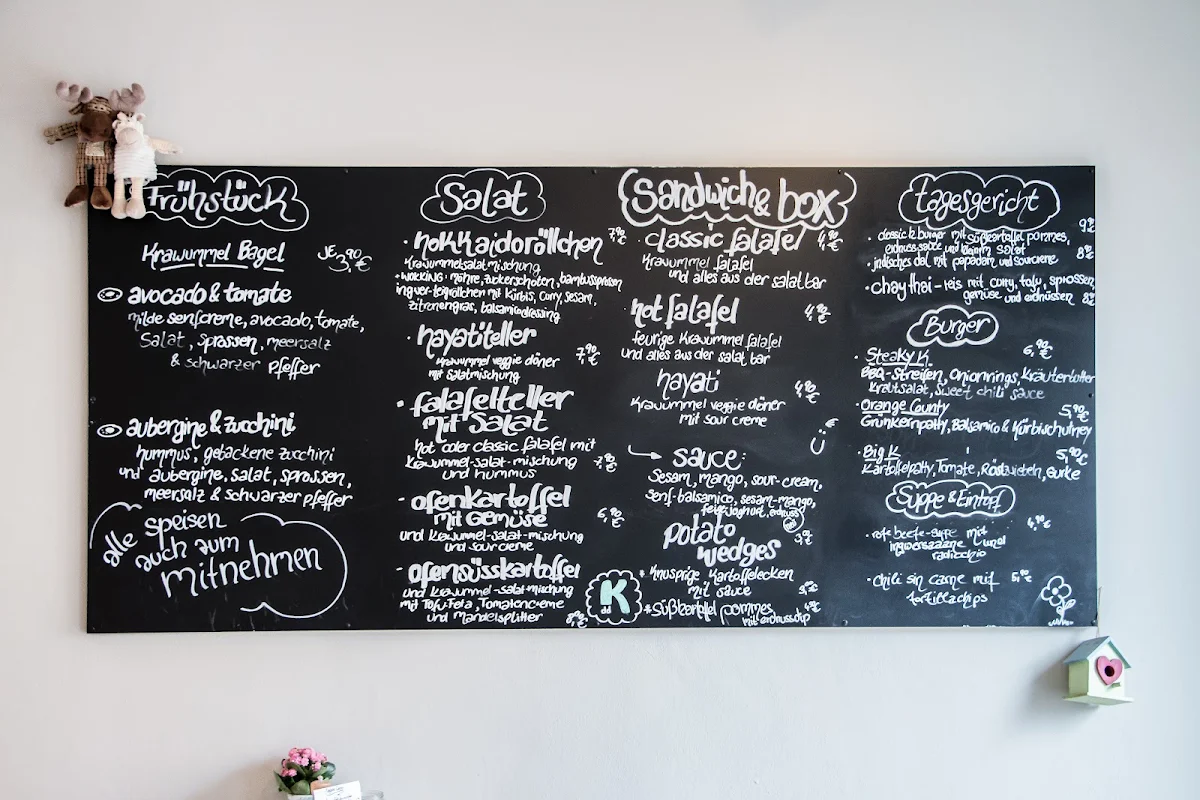 Frühstück
Krawummel Bagel je 3,90€
avocado & tomate
milde senfcreme, avocado, tomate,
Salat, sprossen, meersalz
& schwarzer pfeffer
aubergine & zucchini
hummus, gebackene zucchini
und aubergine, salat, sprossen,
meersalz & schwarzer pfeffer
alle speisen
auch zum
mitnehmen
Salat
· hokkaidoröllchen 7,90€
Krawummelsalatmischung
· wokking: möhre, zuckerschoten, bambussprossen
ingwer-teigröllchen mit kürbis, curry, sesam,
zitronengras, balsamicodressing
· hayatiteller
Krawummel veggie döner 7,90€
mit salatmischung
· falafelteller
mit Salat
hot oder classic falafel mit
Krawummel-salat-mischung 7,90€
und hummus
· ofenkartoffel
mit Gemüse 6,90€
und Krawummel-salat-mischung
und sour creme
· ofensüsskartoffel
und Krawummel-salat-mischung
mit Tofu-Feta, Tomatencreme
und Mandelsplitter 8,90€
Sandwich & box
· classic falafel 4,90€
Krawummel falafel
und alles aus der salatbar
hot falafel 4,90€
feurige Krawummel falafel
und alles aus der salatbar
hayati 4,90€
Krawummel veggie döner
mit sour creme
sauce:
Sesam, mango, sour-cream,
senf-balsamico, sesam-mango,
potato
wedges
* knusprige Kartoffelecken
mit sauce
* süßkartoffel pommes
mit erdnussdip
K
tagesgericht
· classic k burger mit süßkartoffel pommes,
erdnusssauce und kleinem salat
· indisches dal mit papadam und sourcreme
· chay thai - reis mit curry, tofu, sprossen
gemüse und erdnüssen
Burger
· Steaky K. 6,90€
BBQ-Streifen, Onionrings, Kräuterbutter
Krautsalat, sweet chili sauce
· Orange County 5,90€
Grünkernpatty, Balsamico & Kürbischutney
· Big K 5,90€
Kartoffelpatty, Tomate, Röstzwiebeln, Gurke
Suppe & Eintopf
· rote beete-suppe mit 4,90€
ingwersazzne und
radicchio
· chili sin carne mit 5,90€
tortillachips